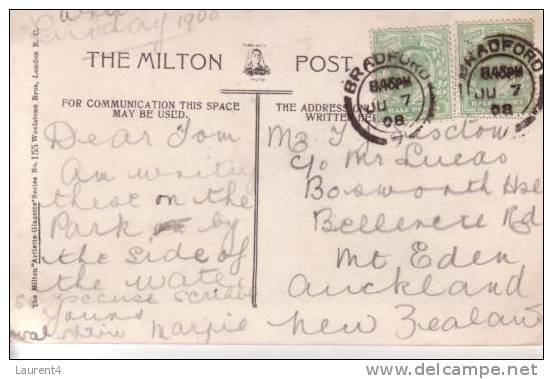 Sunday 1908
THE MILTON POST
BRADFORD
8.45PM
JU 7
08
BRADFORD
8.45PM
JU 7
08
FOR COMMUNICATION THIS SPACE
MAY BE USED.
THE ADDRESS ON
WRITTEN HE
Dear Tom
Am writing
these on the
Park by
the side of
the water
so excuse scribble
Yours
Margie
Mr T
c/o Mr Lucas
Bosworth Hse
Bellevue Rd
Mt Eden
Auckland
New Zealand
The Milton "Artlette-Glazette" Series No. 155 Woolstone Bros, London E.C.
Laurent4
www.delcampe.net